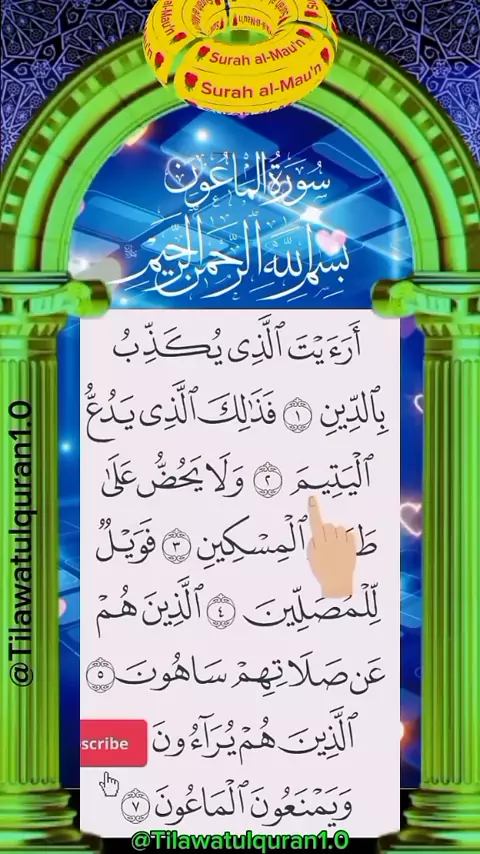 Surah al-Mau'n
Surah al-Mau'n
سُورَةُ الْمَاعُونَ
بِسْمِ اللَّهِ الرَّحْمَنِ الرَّحِيمِ
أَرَءَيْتَ ٱلَّذِى يُكَذِّبُ
بِٱلدِّينِ ١ فَذَٰلِكَ ٱلَّذِى يَدُعُّ
ٱلْيَتِيمَ ٢ وَلَا يَحُضُّ عَلَىٰ
ٱلْمِسْكِينِ ٣ فَوَيْلٌ
لِّلْمُصَلِّينَ ٤ ٱلَّذِينَ هُمْ
عَن صَلَاتِهِمْ سَاهُونَ ٥
ٱلَّذِينَ هُمْ يُرَآءُونَ
scribe
وَيَمْنَعُونَ ٱلْمَاعُونَ ٧
@Tilawatulquran1.0
@Tilawatulquran1.0